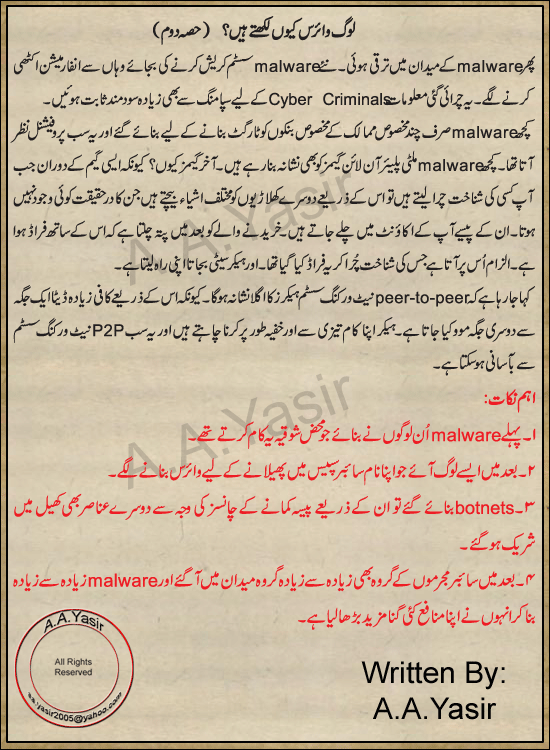 لوگ وائرس کیوں لکھتے ہیں؟ (حصہ دوم)
پھر malware کے میدان میں ترقی ہوئی۔ نئے malware سسٹم کریش کرنے کی بجائے وہاں سے انفارمیشن اکٹھی
کرنے لگے۔ یہ چرائی گئی معلومات Cyber Criminals کے لیے سپامنگ سے بھی زیادہ سودمند ثابت ہوئیں۔
کچھ malware صرف چند مخصوص ممالک کے مخصوص بنکوں کو ٹارگٹ بنانے کے لیے بنائے گئے اور یہ سب پروفیشنل نظر
آتا تھا۔ کچھ malware ملٹی پلیئر آن لائن گیمز کو بھی نشانہ بنا رہے ہیں۔ آخر گیمز کیوں؟ کیونکہ ایسی گیم کے دوران جب
آپ کسی کی شناخت چرا لیتے ہیں تو اس کے ذریعے دوسرے کھلاڑیوں کو مختلف اشیاء بیچتے ہیں جن کا درحقیقت کوئی وجود نہیں
ہوتا۔ ان کے پیسے آپ کے اکاؤنٹ میں چلے جاتے ہیں۔ خریدنے والے کو بعد میں پتہ چلتا ہے کہ اس کے ساتھ فراڈ ہوا
ہے۔ الزام اُس پر آتا ہے جس کی شناخت چُرا کر یہ فراڈ کیا گیا تھا۔ اور ہیکر سیٹی بجاتا اپنی راہ لیتا ہے۔
کہا جا رہا ہے کہ peer-to-peer نیٹ ورکنگ سسٹم ہیکرز کا اگلا نشانہ ہوگا۔ کیونکہ اس کے ذریعے کافی زیادہ ڈیٹا ایک جگہ
سے دوسری جگہ موو کیا جاتا ہے۔ ہیکر اپنا کام تیزی سے اور خفیہ طور پر کرنا چاہتے ہیں اور یہ سب P2P نیٹ ورکنگ سسٹم
سے بآسانی ہو سکتا ہے۔
اہم نکات:
۱۔ پہلے malware اُن لوگوں نے بنائے جو محض شوقیہ یہ کام کرتے تھے۔
۲۔ بعد میں ایسے لوگ آئے جو اپنا نام سائبر سپیس میں پھیلانے کے لیے وائرس بنانے لگے۔
۳۔ botnets بنائے گئے تو ان کے ذریعے پیسہ کمانے کے چانسز کی وجہ سے دوسرے عناصر بھی کھیل میں
شریک ہو گئے۔
۴۔ بعد میں سائبر مجرموں کے گروہ بھی زیادہ سے زیادہ گروہ میدان میں آ گئے اور malware زیادہ سے زیادہ
بنا کر انہوں نے اپنا منافع کئی گنا مزید بڑھا لیا ہے۔
A.A.Yasir
A.A.Yasir
A.A.Yasir
All Rights
Reserved
aa.yasir2005@yahoo.com
Written By:
A.A.Yasir